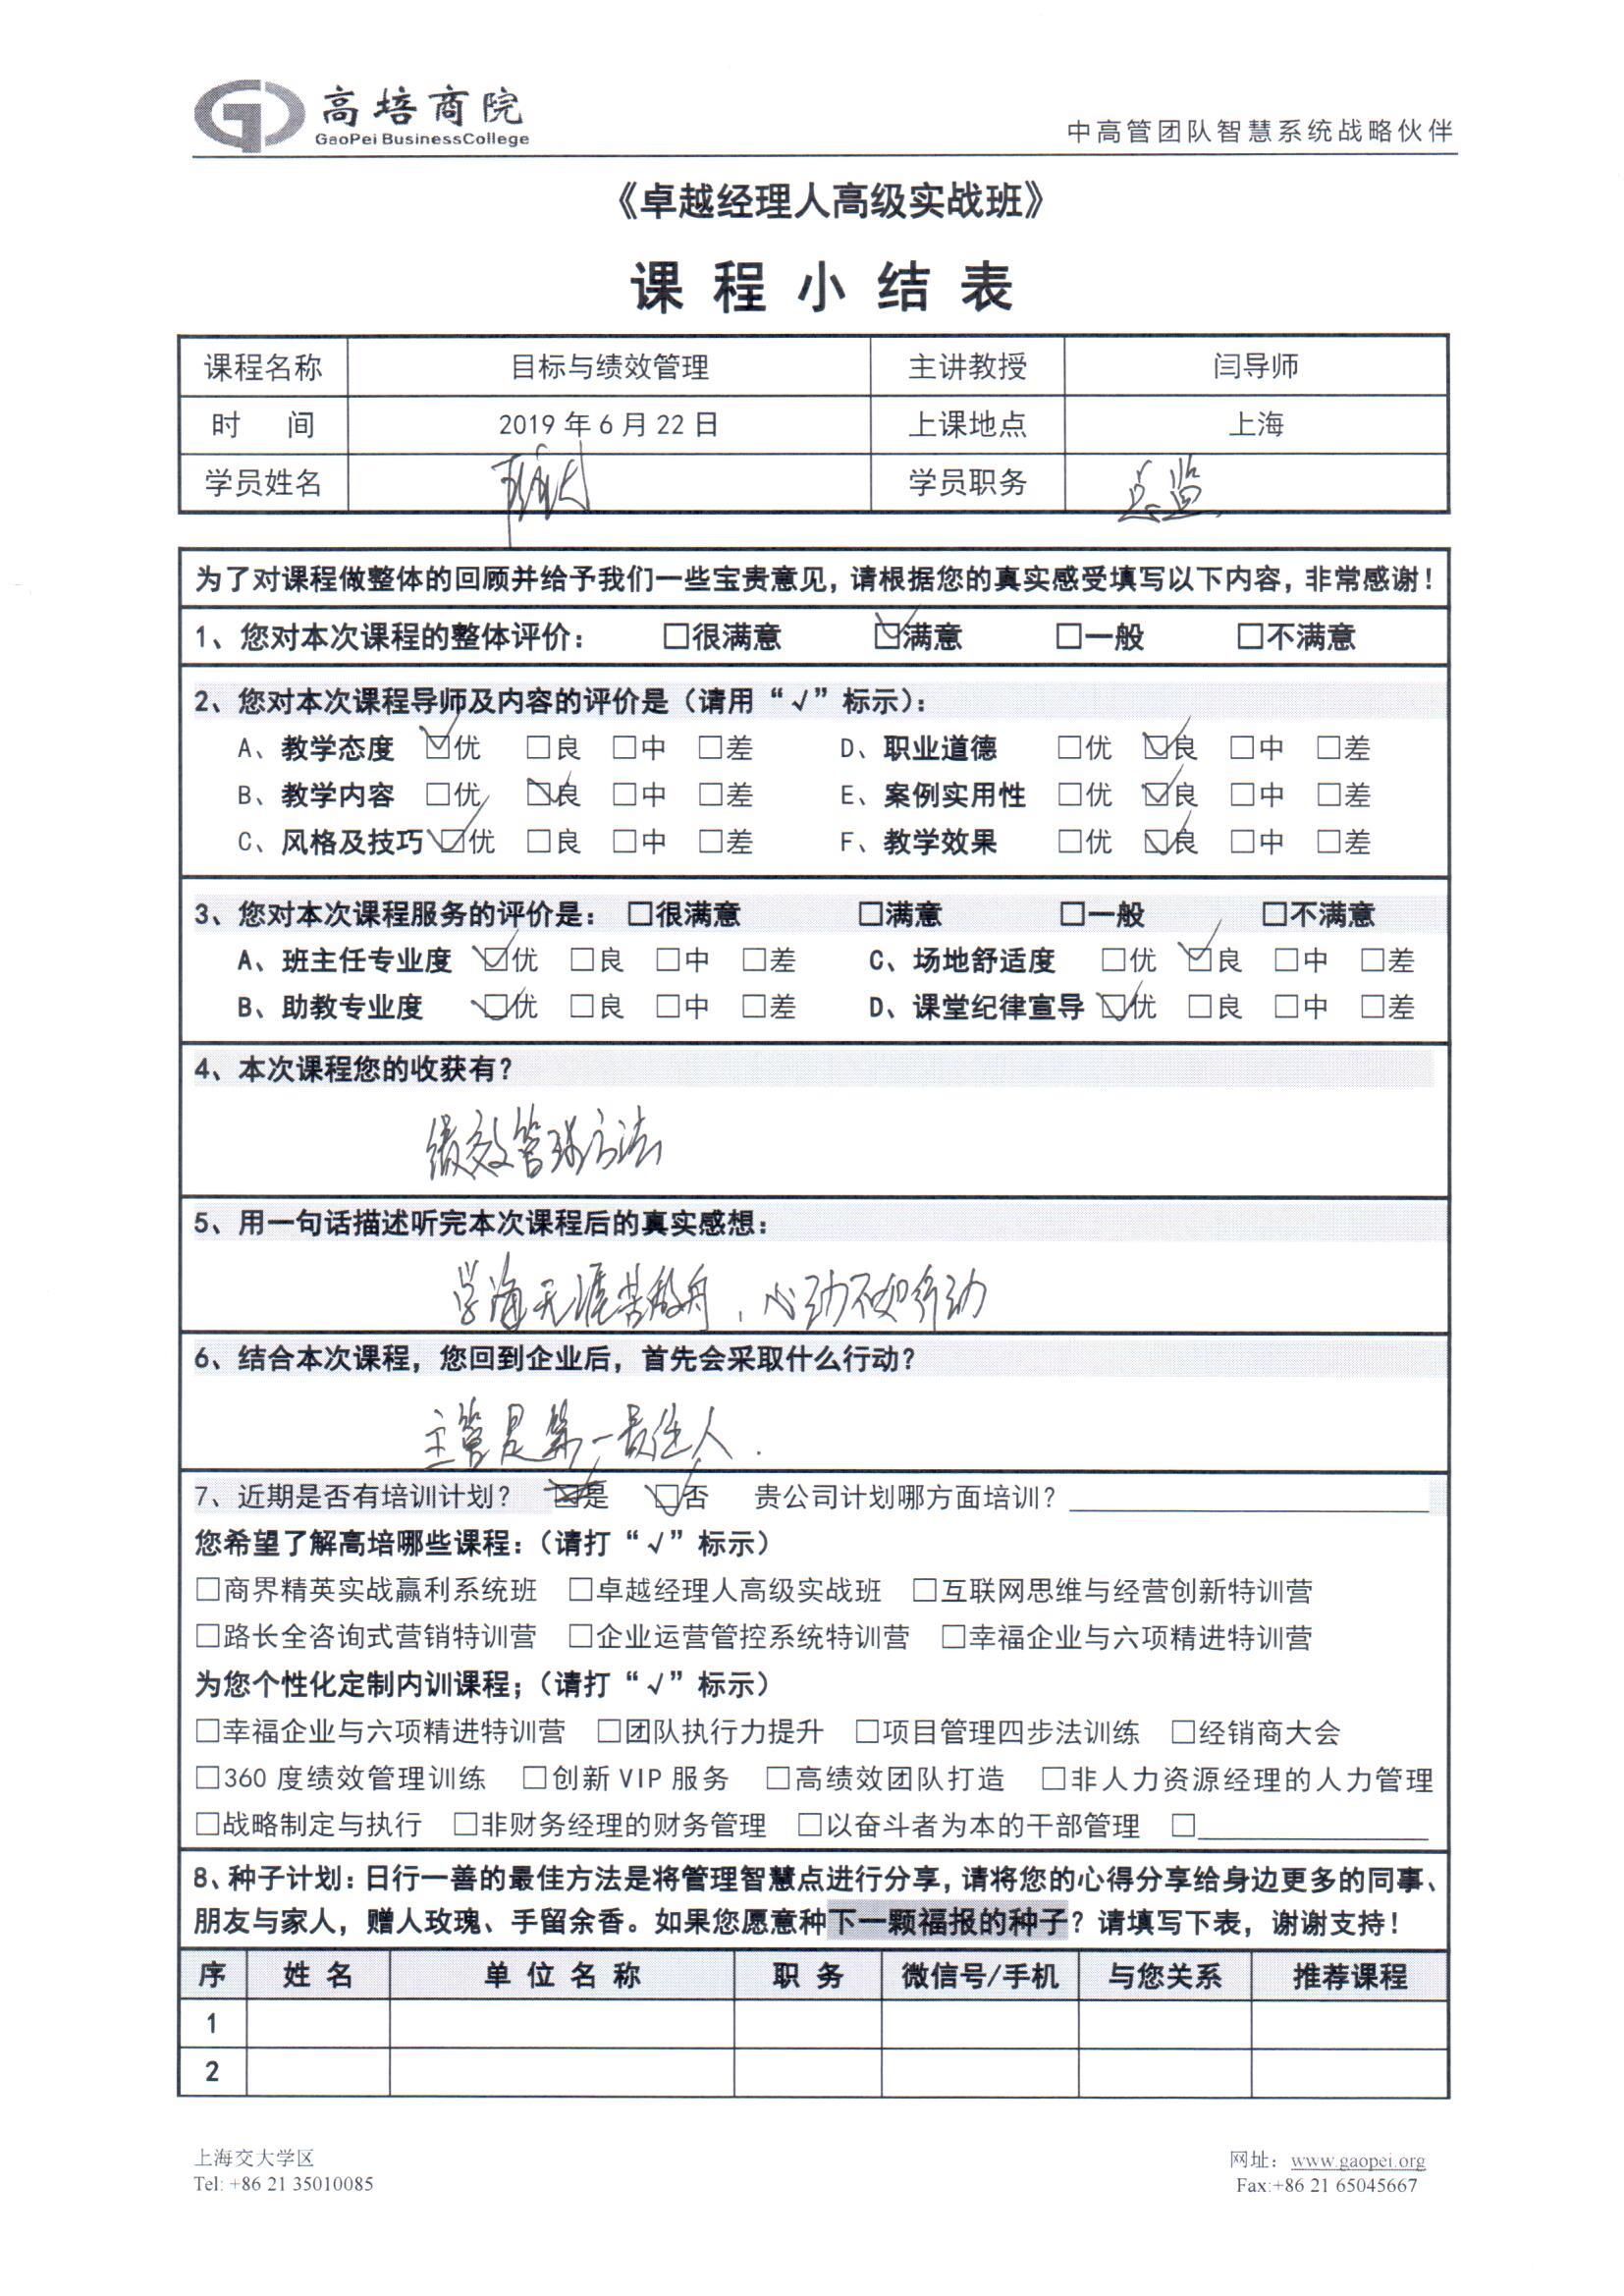 高培商院
GaoPei BusinessCollege
中高管团队智慧系统战略伙伴
《卓越经理人高级实战班》
课程小结表
课程名称 目标与绩效管理 主讲教授 闫导师
时 间 2019年6月22日 上课地点 上海
学员姓名 学员职务 总监
为了对课程做整体的回顾并给予我们一些宝贵意见，请根据您的真实感受填写以下内容，非常感谢！
1、您对本次课程的整体评价： □很满意 ☑满意 □一般 □不满意
2、您对本次课程导师及内容的评价是（请用“√”标示）：
A、教学态度 ☑优 □良 □中 □差 D、职业道德 □优 ☑良 □中 □差
B、教学内容 □优 ☑良 □中 □差 E、案例实用性 □优 ☑良 □中 □差
C、风格及技巧 ☑优 □良 □中 □差 F、教学效果 □优 ☑良 □中 □差
3、您对本次课程服务的评价是： □很满意 □满意 □一般 □不满意
A、班主任专业度 ☑优 □良 □中 □差 C、场地舒适度 □优 ☑良 □中 □差
B、助教专业度 ☑优 □良 □中 □差 D、课堂纪律宣导 ☑优 □良 □中 □差
4、本次课程您的收获有？
绩效管理方法
5、用一句话描述听完本次课程后的真实感想：
学海无涯苦做舟，心动不如行动
6、结合本次课程，您回到企业后，首先会采取什么行动？
主管是第一责任人.
7、近期是否有培训计划？ □是 ☑否 贵公司计划哪方面培训？
您希望了解高培哪些课程：（请打“√”标示）
□商界精英实战赢利系统班 □卓越经理人高级实战班 □互联网思维与经营创新特训营
□路长全咨询式营销特训营 □企业运营管控系统特训营 □幸福企业与六项精进特训营
为您个性化定制内训课程；（请打“√”标示）
□幸福企业与六项精进特训营 □团队执行力提升 □项目管理四步法训练 □经销商大会
□360度绩效管理训练 □创新VIP服务 □高绩效团队打造 □非人力资源经理的人力管理
□战略制定与执行 □非财务经理的财务管理 □以奋斗者为本的干部管理 □
8、种子计划：日行一善的最佳方法是将管理智慧点进行分享，请将您的心得分享给身边更多的同事、
朋友与家人，赠人玫瑰、手留余香。如果您愿意种下一颗福报的种子？请填写下表，谢谢支持！
序 姓名 单位名称 职务 微信号/手机 与您关系 推荐课程
1
2
上海交大学区 网址：www.gaopei.org
Tel: +86 21 35010085 Fax:+86 21 65045667